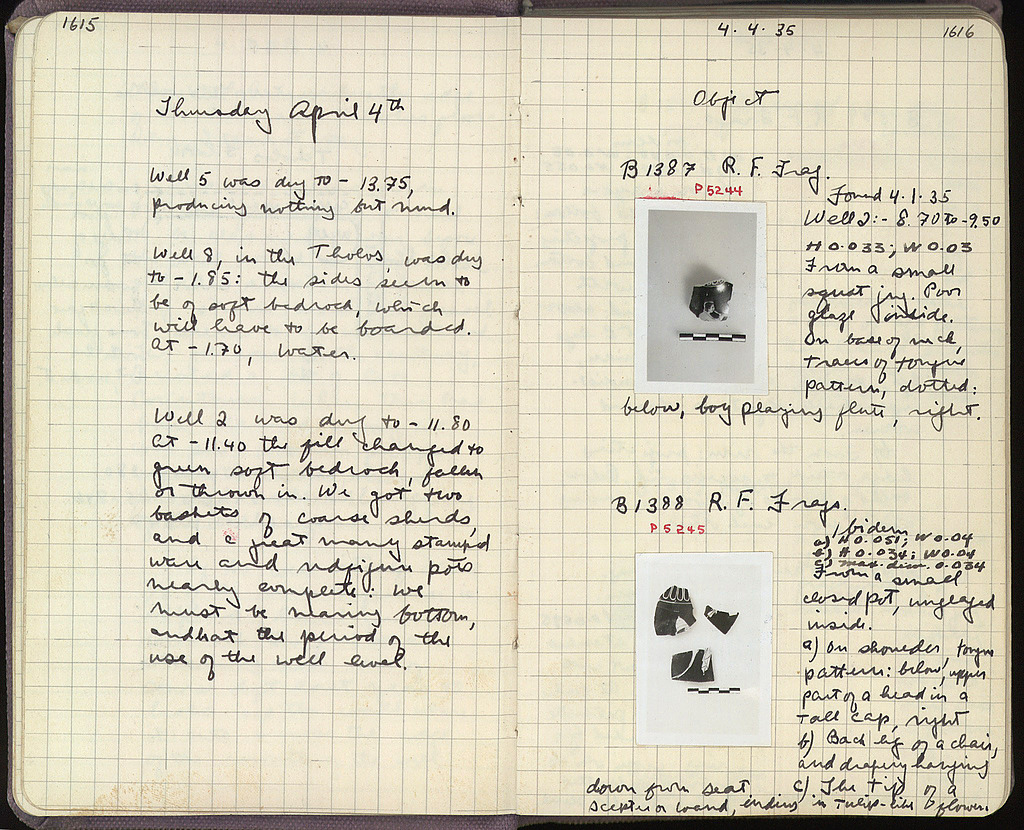 1615
Thursday April 4th
Well 5 was dug to - 13.75,
producing nothing but mud.
Well 8, in the Tholos, was dug
to - 1.85: the sides seem to
be of soft bedrock, which
will have to be boarded.
At - 1.70, water.
Well 2 was dug to - 11.80
At - 11.40 the fill changed to
green soft bedrock, fallen
or thrown in. We got two
baskets of coarse sherds,
and a great many stamp'd
ware and redfigure pots
nearly complete: we
must be nearing bottom,
and at the period of the
use of the well level.
4.4.35
1616
Object
B 1387 R. F. Frag.
P 5244
Found 4.1.35
Well 2:- 8.70 to -9.50
H 0.033; W 0.03
From a small
squat jug. Poor
glaze inside.
On base of neck,
traces of tongue
pattern, dotted:
below, boy playing flute, right.
B 1388 R. F. Frags.
P 5245
Ibidem
a) H 0.051; W 0.04
b) H 0.034; W 0.04
c) max. dim. 0.034
From a small
closed pot, unglazed
inside.
a) On shoulder, tongue
pattern: below, upper
part of a head in a
tall cap, right
b) Back leg of a chair,
and drapery hanging
down from seat, c) The tip of a
scepter or wand, ending in tulip-like flower.